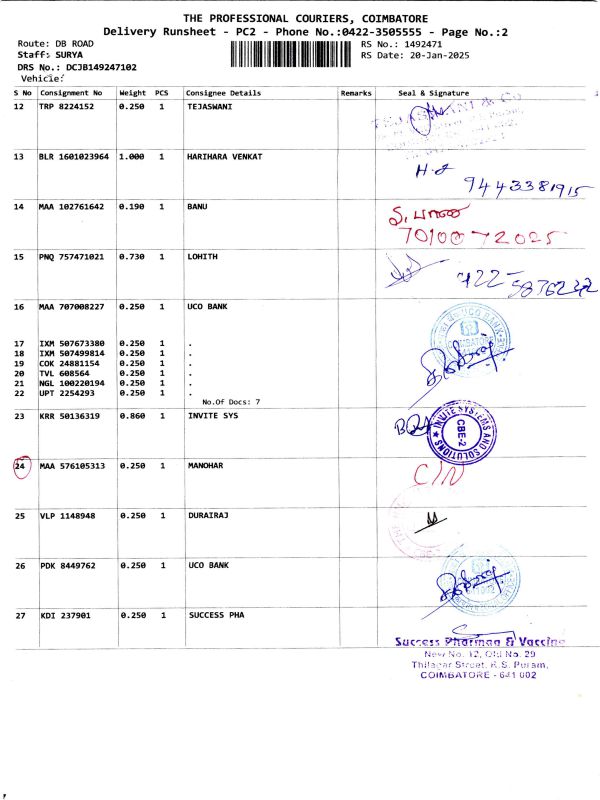 THE PROFESSIONAL COURIERS, COIMBATORE
Delivery Runsheet - PC2 - Phone No.:0422-3505555 - Page No.:2
Route: DB ROAD RS No.: 1492471
Staff: SURYA RS Date: 20-Jan-2025
DRS No.: DCJB149247102
Vehicle:
S No Consignment No Weight PCS Consignee Details Remarks Seal & Signature
12 TRP 8224152 0.250 1 TEJASWANI
13 BLR 1601023964 1.000 1 HARIHARA VENKAT
9443381915
14 MAA 102761642 0.190 1 BANU
7010072025
15 PNQ 757471021 0.730 1 LOHITH
16 MAA 707008227 0.250 1 UCO BANK
UCO BANK
COIMBATORE
17 IXM 507673380 0.250 1 .
18 IXM 507499814 0.250 1 .
19 COK 24881154 0.250 1 .
20 TVL 608564 0.250 1 .
21 NGL 100220194 0.250 1 .
22 UPT 2254293 0.250 1 .
No.Of Docs: 7
23 KRR 50136319 0.860 1 INVITE SYS
INVITE SYSTEMS AND SOLUTIONS
CBE-2
24 MAA 576105313 0.250 1 MANOHAR
C/N
25 VLP 1148948 0.250 1 DURAIRAJ
26 PDK 8449762 0.250 1 UCO BANK
27 KDI 237901 0.250 1 SUCCESS PHA
Success Pharmaa & Vaccine
New No. 12, Old No. 29
Thilagar Street, R.S. Puram,
COIMBATORE - 641 002